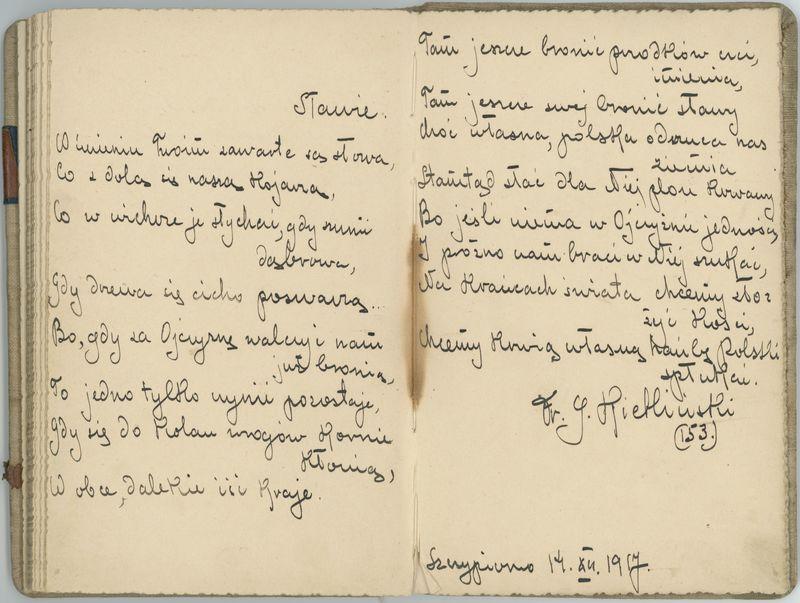 Sławie.
W imieniu Twoim zawarte są słowa,
Co z dolą cię naszą kojarzą,
Co w wichrze je słychać, gdy szumi
dąbrowa,
Gdy drzewa się cicho poswarzą...
Bo, gdy za Ojczyznę walczyć nam
już bronią,
To jedno tylko czynić pozostaje,
Gdy się do kolan wrogów kornie
kłonią,
W obce, dalekie iść kraje.
Tam jeszcze bronić przodków czci,
imienia,
Tam jeszcze swej bronić sławy
choć własna, polska odrzuca nas
ziemia
Stamtąd słać dla Niej plon krwawy
Bo jeśli niema w Ojczyźnie jedności
I próżno nam braci w Niej szukać,
Na krańcach świata chcemy zło:
żyć kości,
Chcemy krwią własną hańbę Polski
spłukać.
Fr. J. Kiekliński
(153.)
Szczypiorno 14. XII. 1917.